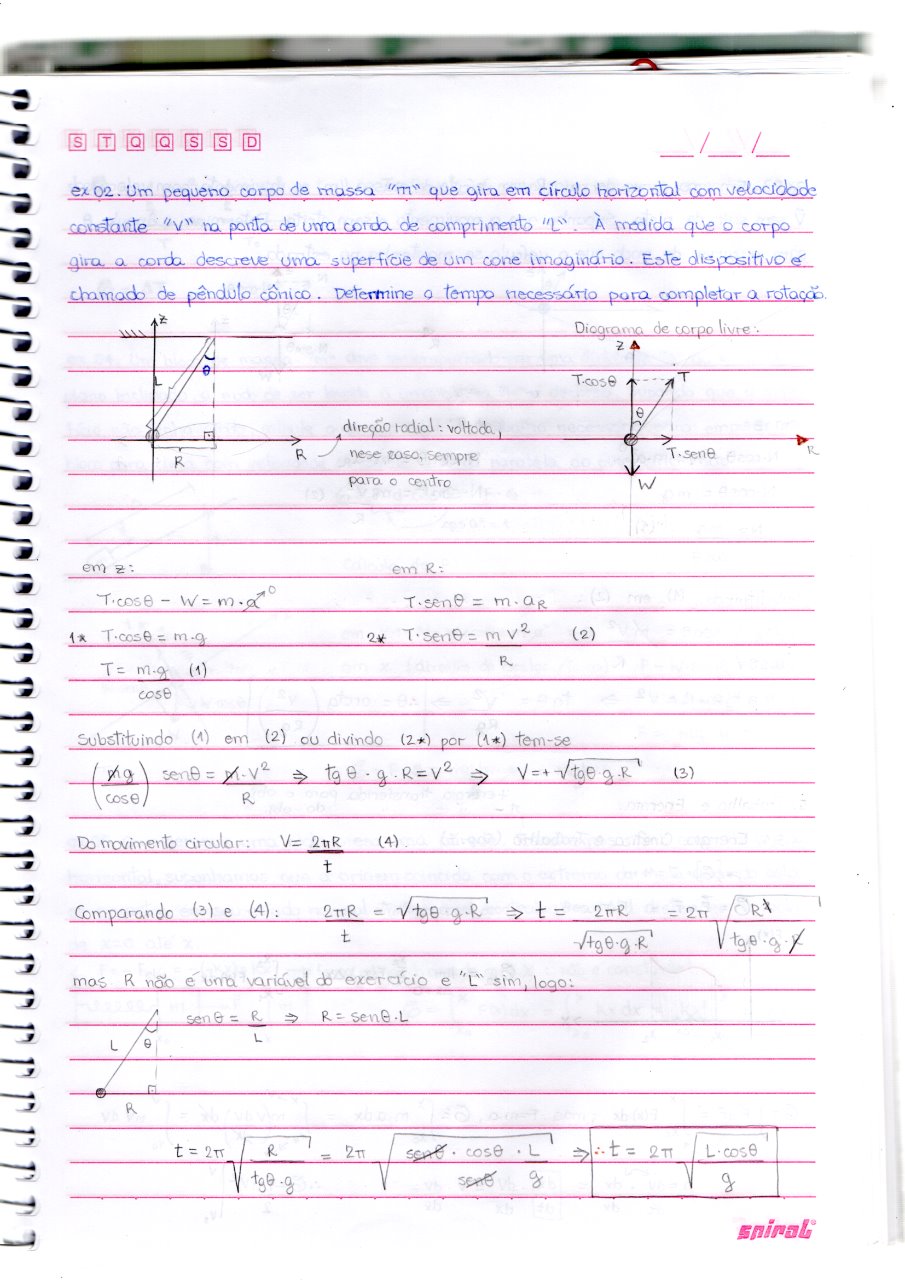 S T Q Q S S D
__/__/__
ex 02. Um pequeno corpo de massa "m" que gira em círculo horizontal com velocidade
constante "V" na ponta de uma corda de comprimento "L". À medida que o corpo
gira a corda descreve uma superfície de um cone imaginário. Este dispositivo é
chamado de pêndulo cônico. Determine o tempo necessário para completar a rotação.
z
θ
L
R
R
direção radial: voltada,
nese caso, sempre
para o centro
Diagrama de corpo livre:
z
T·cosθ
T
θ
T·senθ
R
W
em z:
T·cosθ - W = m·a⁰
1* T·cosθ = m·g
T = m·g/cosθ (1)
em R:
T·senθ = m·a_R
2* T·senθ = m V²/R (2)
Substituindo (1) em (2) ou divindo (2*) por (1*) tem-se
(mg/cosθ) senθ = m·V²/R ⇒ tgθ·g·R = V² ⇒ V = + √(tgθ·g·R) (3)
Do movimento circular: V = 2πR/t (4).
Comparando (3) e (4): 2πR/t = √(tgθ·g·R) ⇒ t = 2πR/√(tgθ·g·R) = 2π √(R²/(tgθ·g·R))
mas R não é uma variável do exercício e "L" sim, logo:
senθ = R/L ⇒ R = senθ·L
L
θ
R
t = 2π √(R/(tgθ·g)) = 2π √(senθ·cosθ·L/(senθ g)) ⇒ ∴ t = 2π √(L·cosθ/g)
spiral